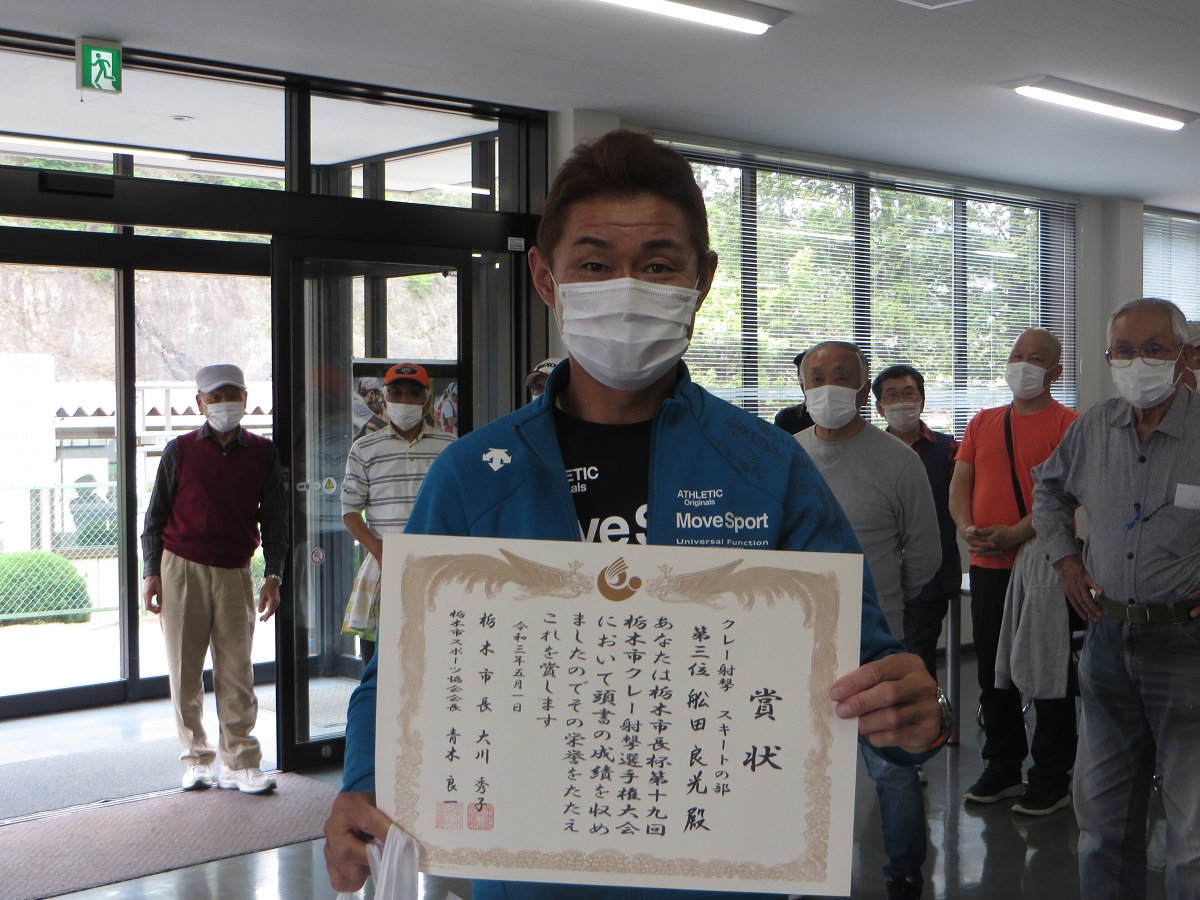 賞状
クレー射撃 スキートの部
第三位 舩田良光殿
あなたは栃木市長杯第十九回
栃木市クレー射撃選手権大会
において頭書の成績を収め
ましたのでその栄誉をたたえ
これを賞します
令和三年五月一日
栃木市長 大川秀子
栃木市スポーツ協会会長 青木良一
ATHLETIC
Originals
MoveSport
Universal Function
ATHLETIC
Originals
MoveS